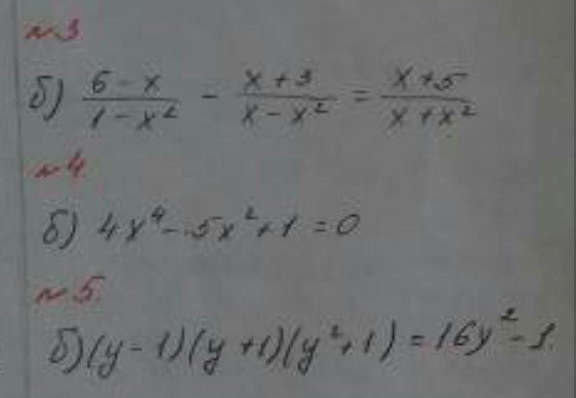 №3
б) (6 - x)/(1 - x²) - (x + 3)/(x - x²) = (x + 5)/(x + x²)
№4.
б) 4x⁴ - 5x² + 1 = 0
№5.
б) (y - 1)(y + 1)(y² + 1) = 16y² - 1.